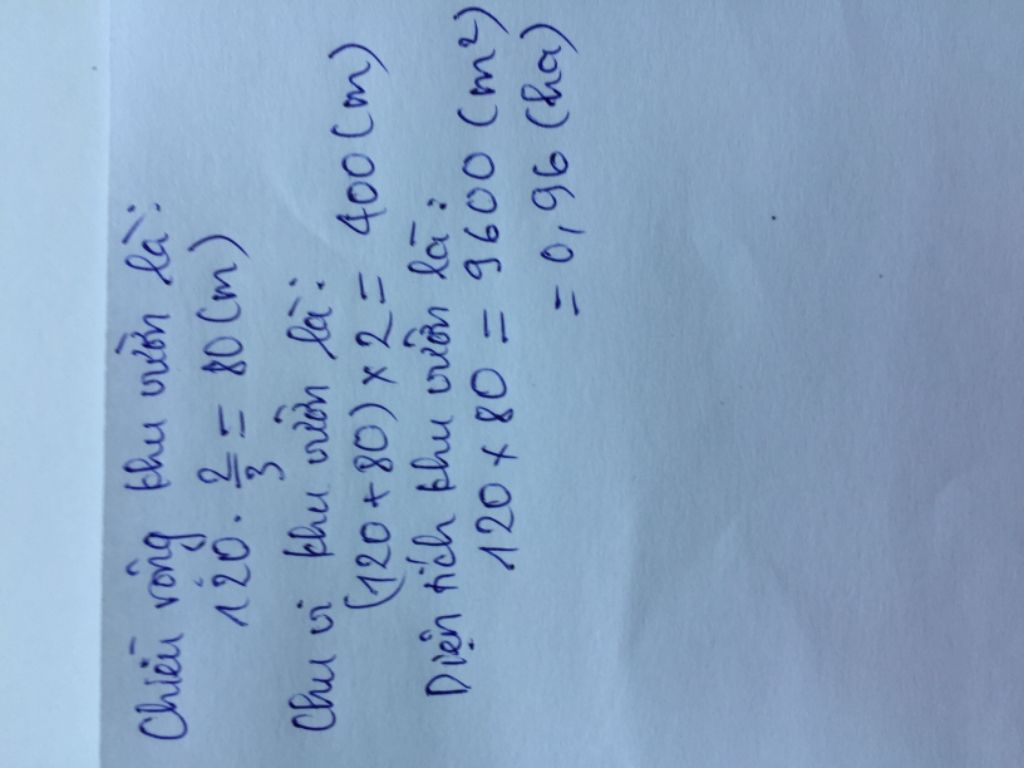 Chiều rộng khu vườn là:
120 . 2/3 = 80 (m)
Chu vi khu vườn là:
(120 + 80) x 2 = 400 (m)
Diện tích khu vườn là:
120 x 80 = 9600 (m²)
= 0,96 (ha)